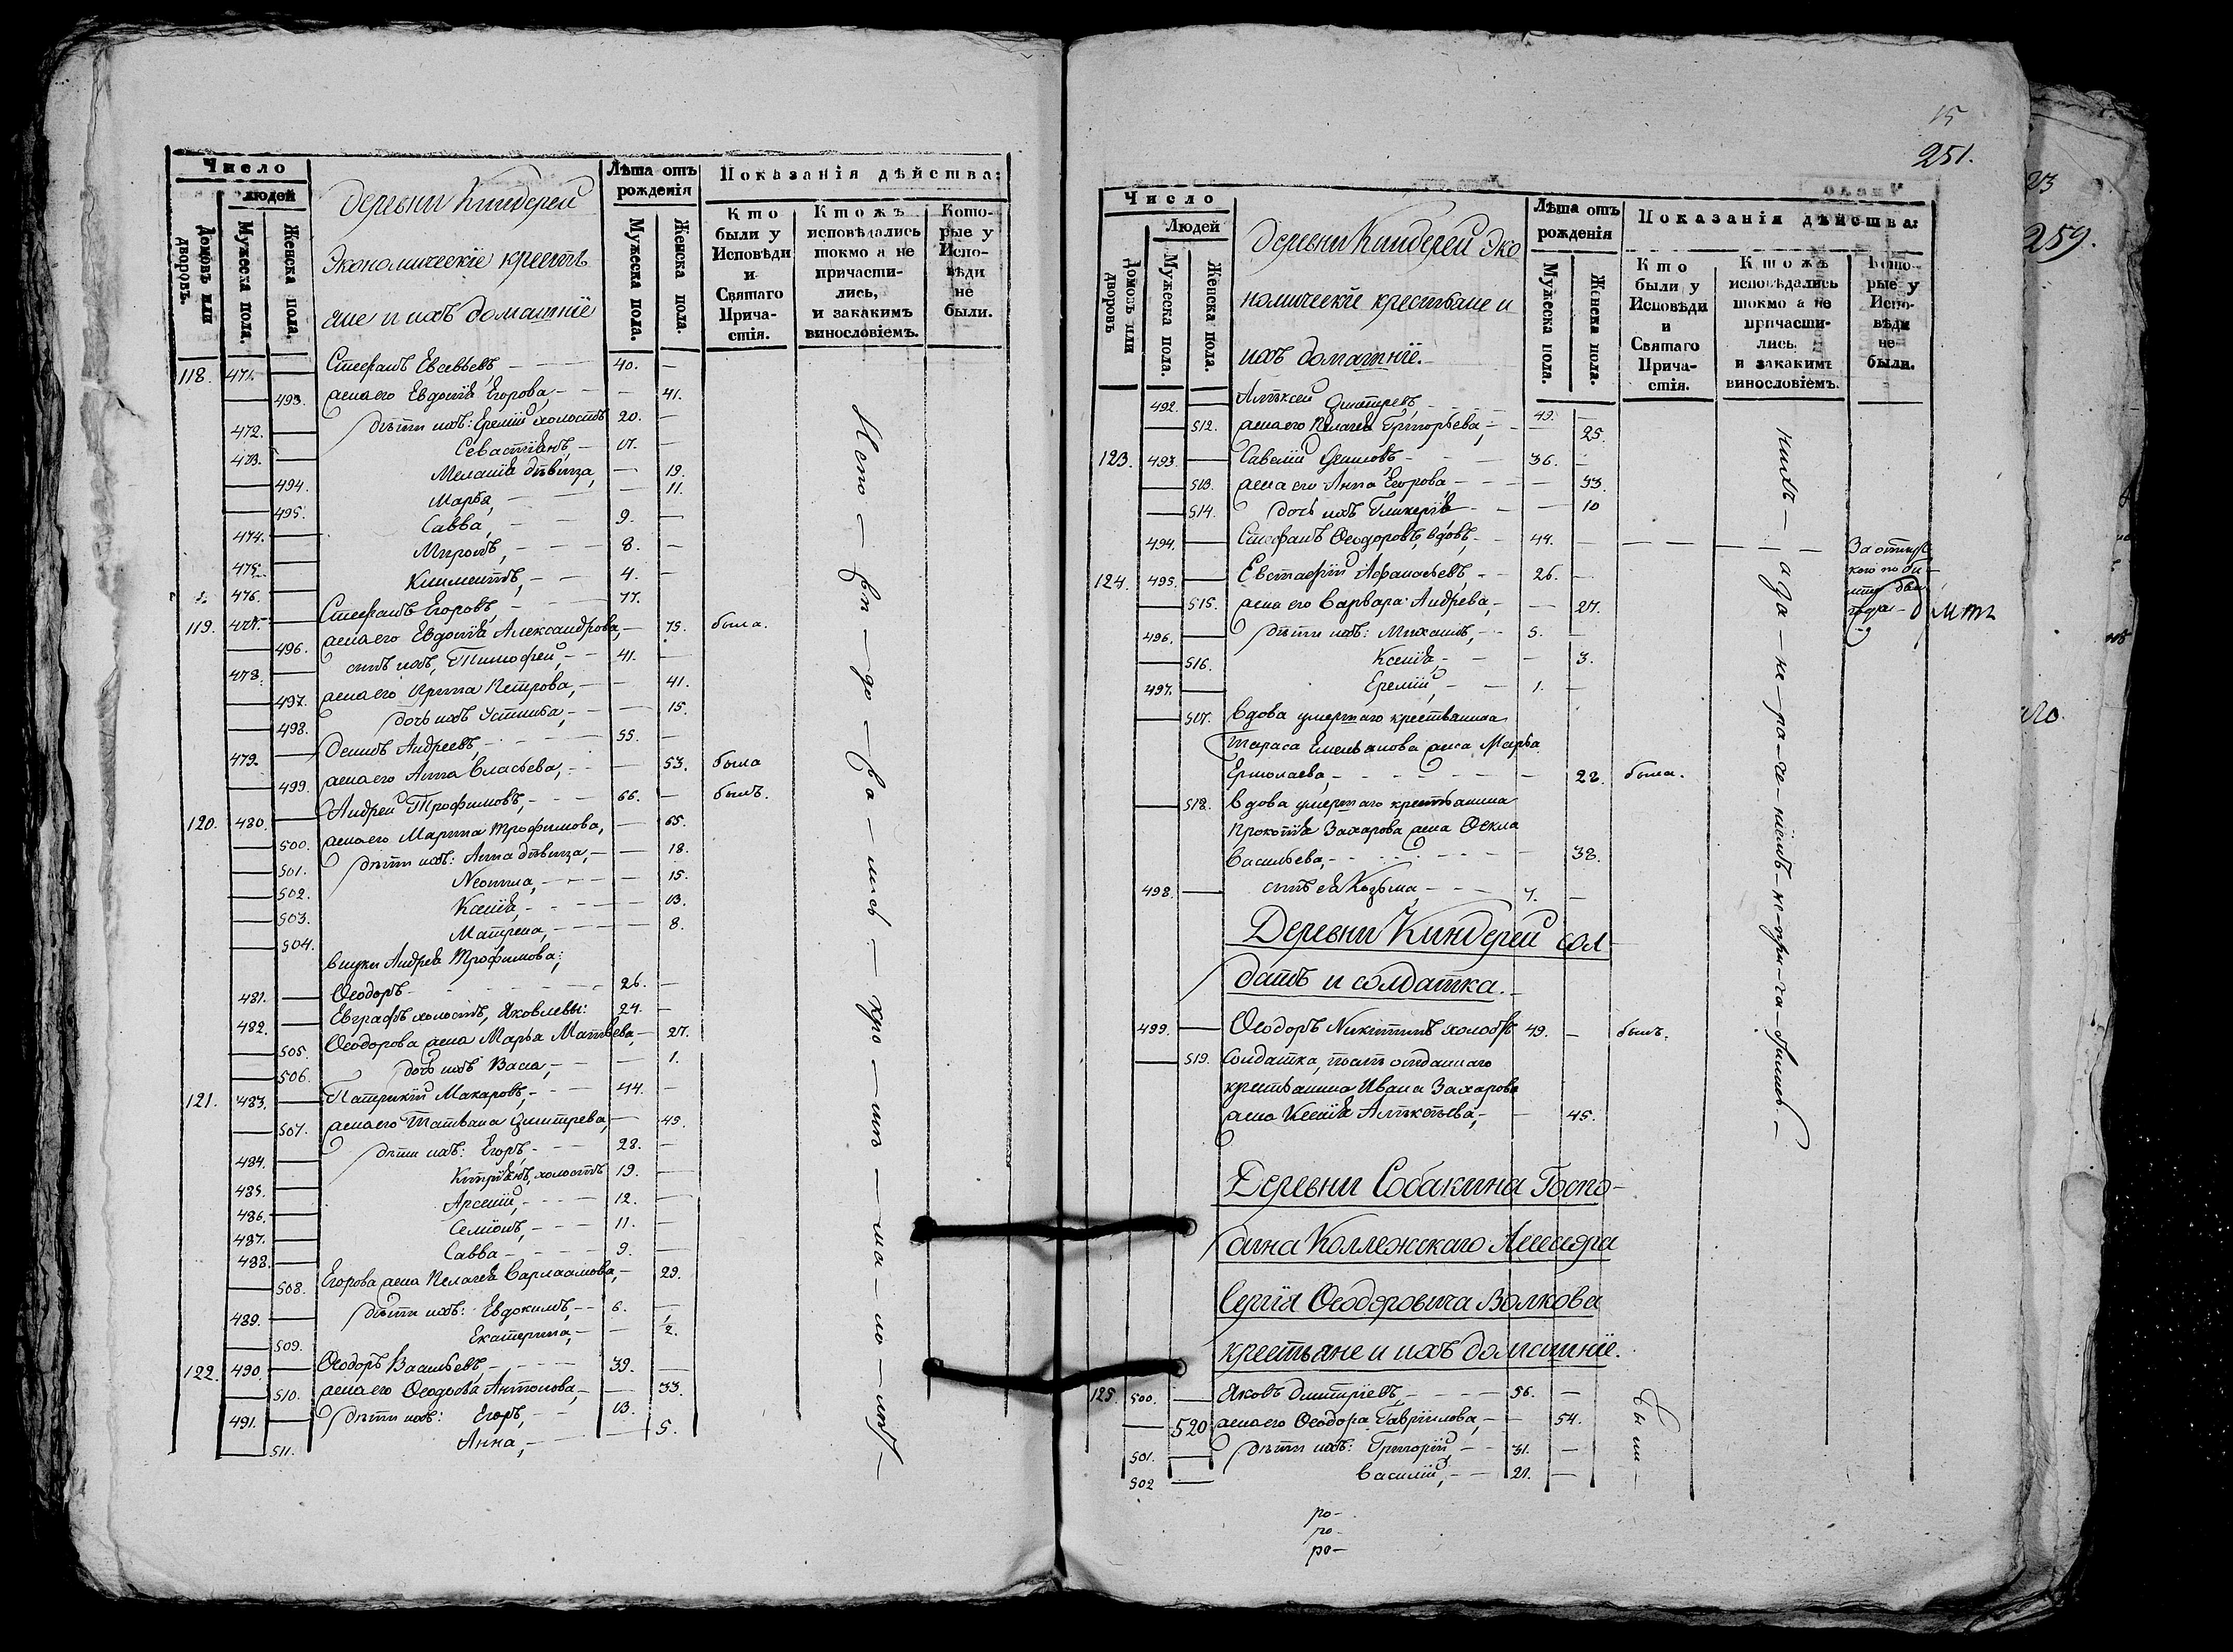 Число
людей
Домовъ или дворовъ.
Мужеска пола.
Женска пола.
деревни Киндереи
Экономическіе крестъ
яне и ихъ домашніе
Лѣта отъ рожденія
Мужеска пола.
Женска пола.
Показанія дѣйства:
Кто были у Исповѣди и Святаго Причастія.
Ктожъ исповѣдались токмо а не причастились, и закакимъ винословіемъ.
Которые у Исповѣди не были.
118. 471. Стефанъ Евсевьевъ, 40.
493. жена его Евдокія Егорова 41.
472. дѣти ихъ: Еремій холостъ 20.
473. Севастіянъ, 17.
494. Меланія дѣвица, 19.
495. Марья, 11.
474. Савва, 9.
475. Миронъ, 8.
476. Климентъ, 4.
119. 477. Стефанъ Егоровъ, 77.
496. жена его Евдокія Александрова, 75. была.
478. сынъ ихъ, Тимофей, 41.
497. жена его Ирина Петрова, 41.
498. дочь ихъ Устинья, 15.
479. Денисъ Андреевъ, 55.
499. жена его Анна Власьева, 53. была
120. 480. Андрей Трофимовъ, 66. былъ.
500. жена его Марина Трофимова, 65.
501. дѣти ихъ: Анна дѣвица, 18.
502. Неонила, 15.
503. Ксенія, 13.
504. Матрена, 8.
внуки Андрея Трофимова:
481. Ѳеодоръ 26.
482. Евграфъ холостъ, Яковлевы: 24.
505. Ѳеодорова жена Марья Матвѣева, 27.
506. дочь ихъ Васса, 1.
121. 483. Патрикій Макаровъ, 44.
507. жена его Татьяна Дмитрева, 49.
484. дѣти ихъ: Егоръ, 28.
485. Кипріянъ, холостъ 19.
486. Арсеній, 12.
487. Семіонъ, 11.
488. Савва 9.
508. Егорова жена Пелагея Варлаамова, 29.
489. дѣти ихъ: Евдокимъ, 6.
509. Екатерина, 2.
122. 490. Ѳеодоръ Васильевъ, 39.
510. жена его Ѳеодосья Антонова, 33.
491. дѣти ихъ: Егоръ, 13.
511. Анна, 5.
15
251.
Число
Людей
Домовъ или дворовъ
Мужеска пола.
Женска пола.
деревни Киндереи Эко
номическіе крестьяне и
ихъ домашніе.
Лѣта отъ рожденія
Мужеска пола.
Женска пола.
Показанія дѣйства:
Кто были у Исповѣди и Святаго Причастія.
Ктожъ исповѣдались токмо а не причастились. и закакимъ винословіемъ.
Которые у Исповѣди не были.
492. Алѣксей Дмитревъ, 49.
512. жена его Пелагея Григорьева, 25.
123. 493. Савелій Денисовъ 36.
513. жена его Анна Егорова 33.
514. дочь ихъ Гликерія 10
494. Стефанъ Ѳеодоровъ, вдовъ, 44.
124. 495. Евстафій Афанасьевъ, 26.
515. жена его Варвара Андрева, 27.
496. дѣти ихъ: Михаилъ, 5.
516. Ксенія, 3.
497. Еремій, 1.
517. вдова умершаго крестьянина
Тараса Емельянова жена Марья
Ермолаева, 28. была.
518. вдова умершаго крестьянина
Прокопія Захарова жена Ѳекла
Васильева, 38.
498. сынъ ея Козьма, 7.
Деревни Киндереи сол
датъ и солдатка.
499. Ѳеодоръ Никитинъ холостъ 49. былъ.
519. Солдатка, отданнаго
крестьянина Ивана Захарова
жена Ксенія Алѣксѣева, 45.
Деревни Собакина Госпо-
дина Коллежскаго Ассессора
Сергія Ѳеодоровича Волкова
крестьяне и ихъ домашніе.
125. 500. Яковъ Дмитріевъ, 56.
520 жена его Ѳеодора Гавріилова, 54.
501. дѣти ихъ: Григорій 31.
502 Василій, 21.
Были
ро-
ро-
23
259.